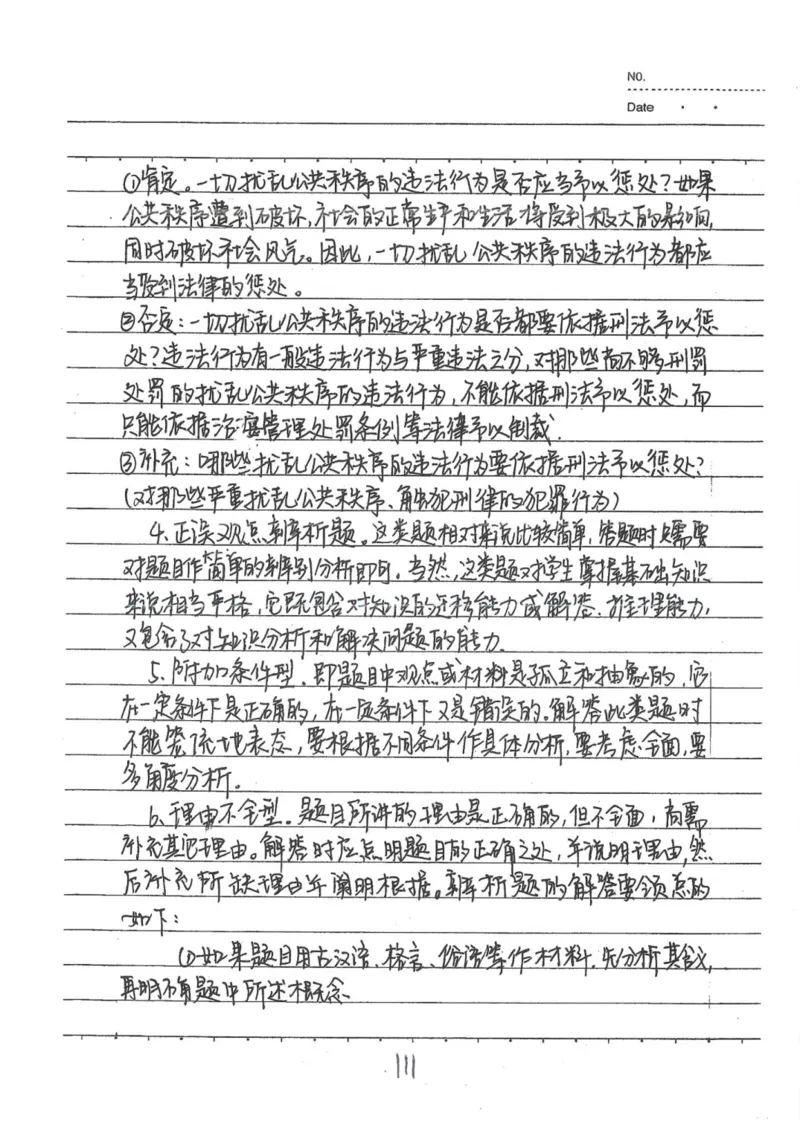 NO.
Date
①肯定。一切扰乱公共秩序的违法行为是否应当予以惩处?如果
公共秩序遭到破坏,社会的正常生产和生活将受到极大的影响,
同时破坏社会风气。因此,一切扰乱公共秩序的违法行为都应
当受到法律的惩处。
②否定:一切扰乱公共秩序的违法行为是否都要依据刑法予以惩
处?违法行为有一般违法行为与严重违法之分,对那些尚不够刑罚
处罚的扰乱公共秩序的违法行为,不能依据刑法予以惩处,而
只能依据治安管理处罚条例等法律予以制裁.
③补充:哪些扰乱公共秩序的违法行为要依据刑法予以惩处?
(对那些严重扰乱公共秩序、触犯刑律的犯罪行为)
4.正误观点辨析题。这类题相对来说比较简单,答题时只需要
对题目作简单的辨别分析即可。当然,这类题对学生掌握基础知识
来说相当严格,它既包含对知识的迁移能力或解答、推理能力,
又包含了对知识分析和解决问题的能力.
5.附加条件型.即题目中观点或材料是孤立和抽象的,它
在一定条件下是正确的,在一定条件下又是错误的。解答此类题时
不能笼统地表态,要根据不同条件作具体分析,要考虑全面,要
多角度分析.
6.理由不全型。题目所讲的理由是正确的,但不全面,尚需
补充其它理由。解答时应点明题目的正确之处,并说明理由,然
后补充所缺理由并阐明根据。辨析题的解答要领总的
如下:
(1)如果题目用古汉语、格言、俗语等作材料.先分析其含义,
再明确题中所述概念.
111